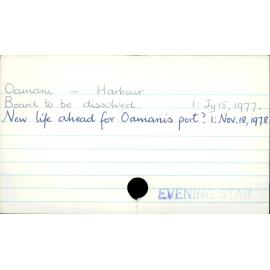 Oamaru — Harbour
Board to be dissolved. 1. Jy 15, 1977.
New life ahead for Oamaru's port? 1. Nov. 18, 1978
EVENING STAR